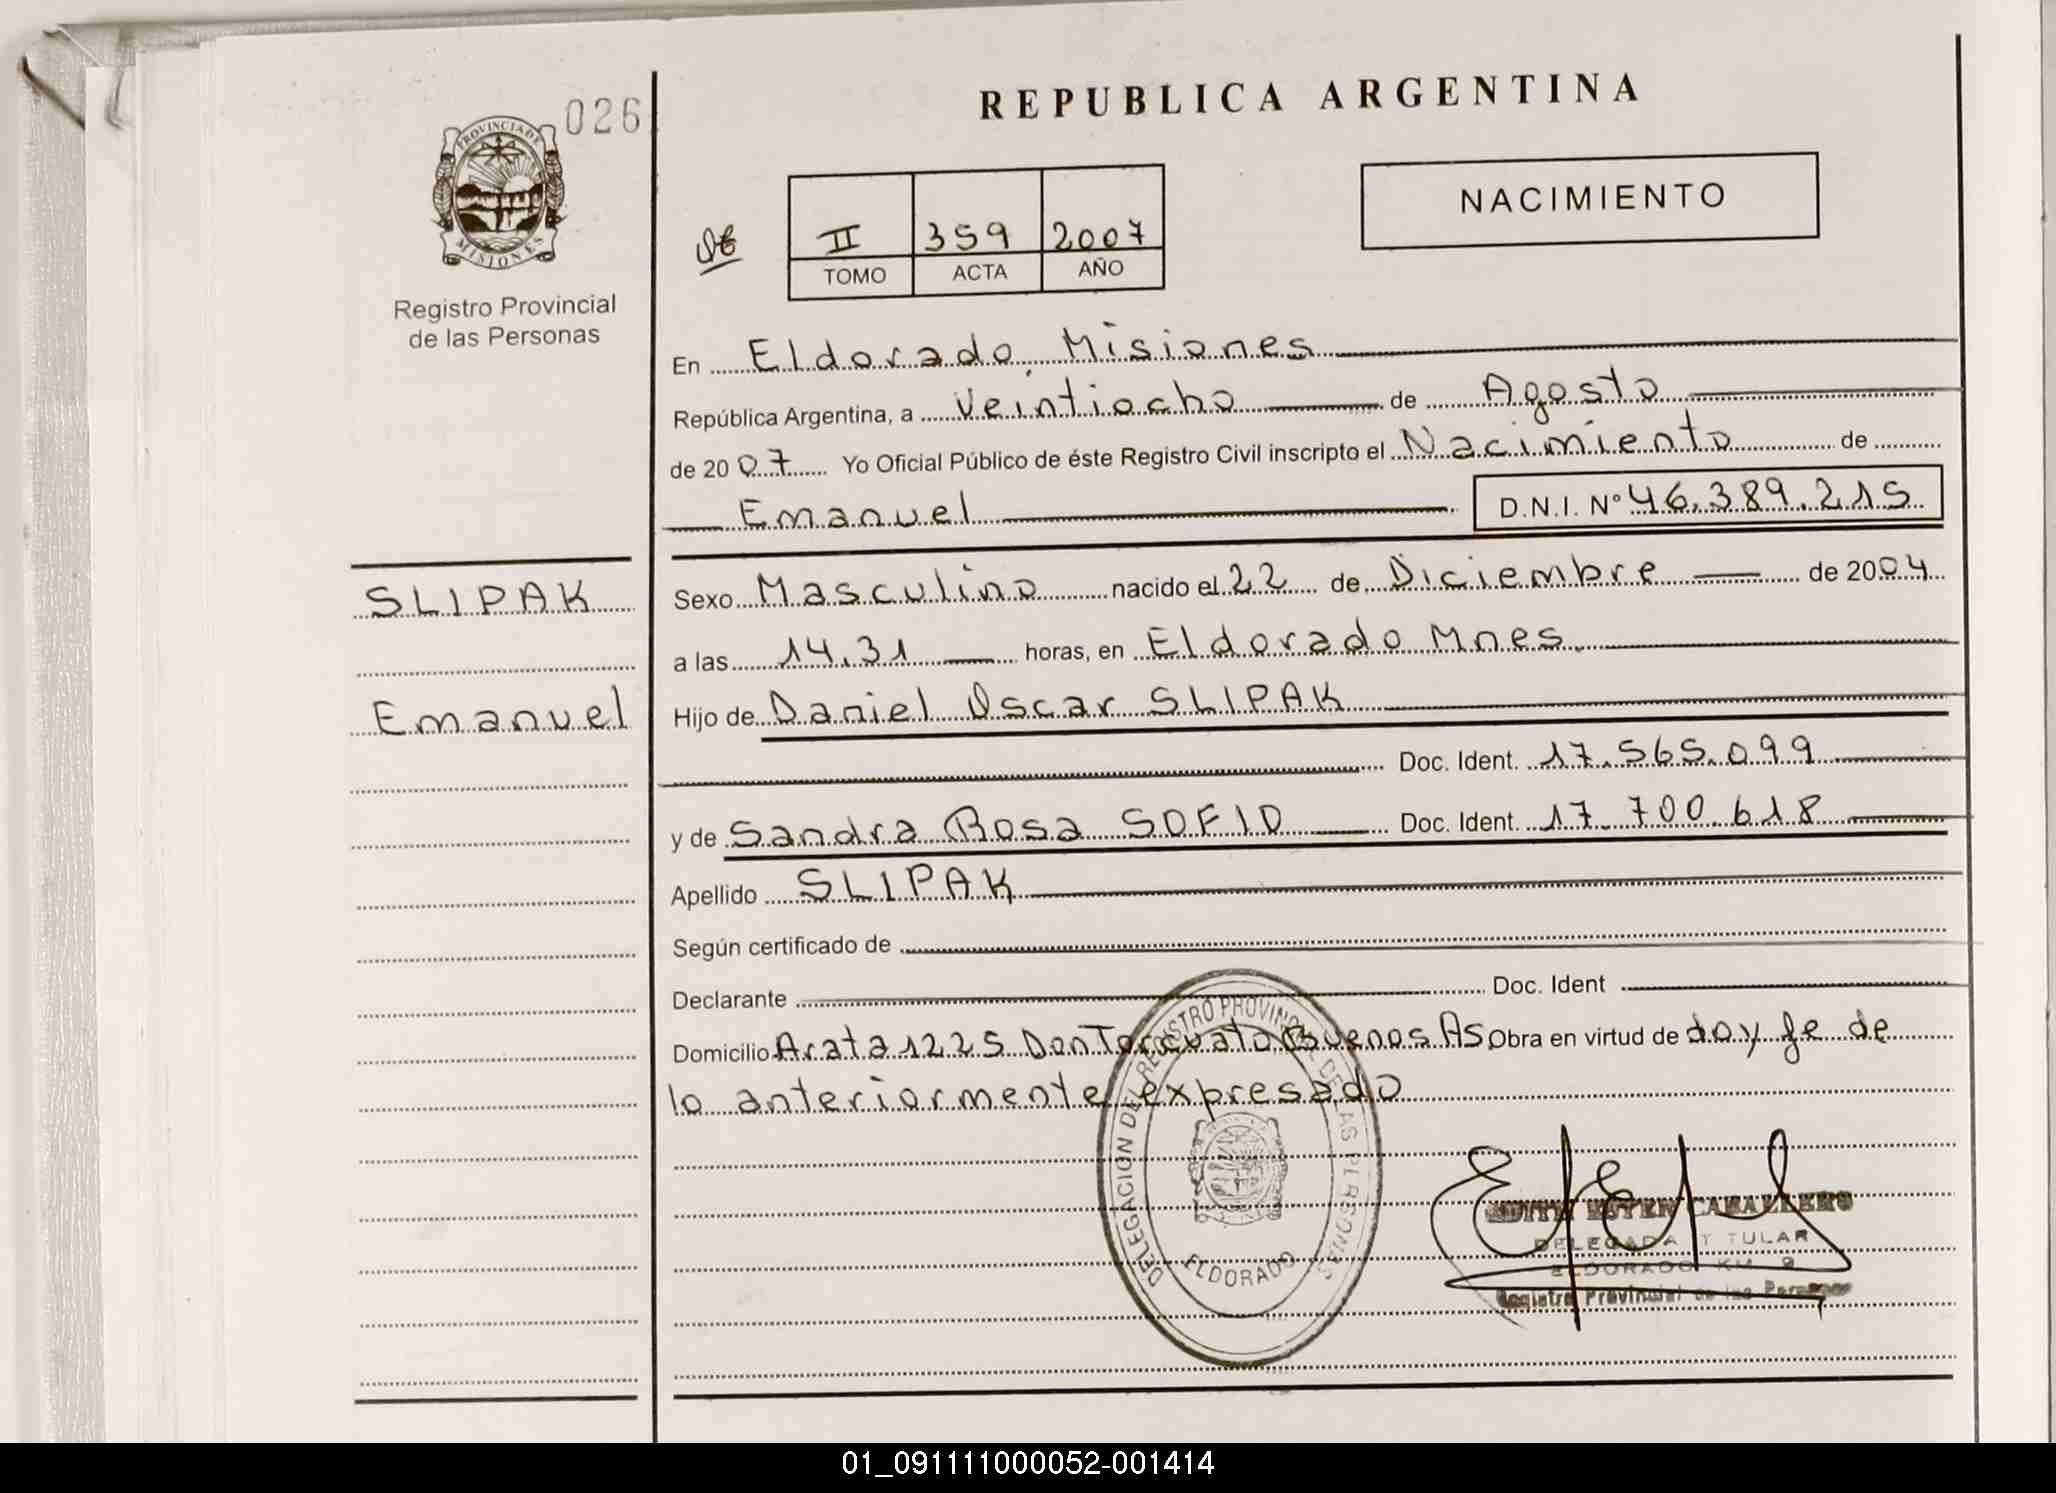 026
PROVINCIA DE
MISIONES
Registro Provincial
de las Personas
SLIPAK
Emanuel
REPUBLICA ARGENTINA
NACIMIENTO
II 359 2007
TOMO ACTA AÑO
En Eldorado Misiones
República Argentina, a veintiocho de Agosto
de 2007 Yo Oficial Público de éste Registro Civil inscripto el Nacimiento de
Emanuel D.N.I. Nº 46.389.215
Sexo Masculino nacido el 22 de Diciembre de 2004
a las 14.31 horas, en Eldorado Mnes.
Hijo de Daniel Oscar SLIPAK
Doc. Ident. 17.565.099
y de Sandra Rosa SOFIO Doc. Ident. 17.700.618
Apellido SLIPAK
Según certificado de
Declarante Doc. Ident
Domicilio Arata 1225 Don Torcuato Buenos As Obra en virtud de doy fe de
lo anteriormente expresado
DELEGACION DEL REGISTRO PROVINCIAL DE LAS PERSONAS
ELDORADO
EDITH ESTER CABALLERO
DELEGADA TITULAR
ELDORADO KM 9
Registro Provincial de las Personas
01_091111000052-001414